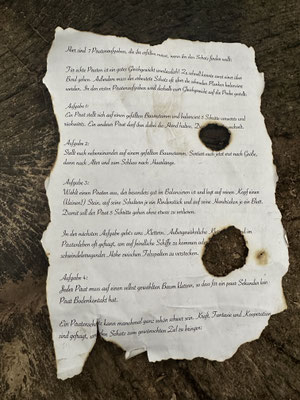 Hier sind 7 Piratenaufgaben, die ihr erfüllen müsst, wenn ihr den Schatz finden wollt:
Für echte Piraten ist ein guter Gleichgewicht unerlässlich! Zu schnell kann man über
Bord gehen. Außerdem muss der erbeutete Schatz oft über die schmalen Planken balanciert
werden. In den ersten Piratenaufgaben wird deshalb euer Gleichgewicht auf die Probe gestellt.
Aufgabe 1:
Ein Pirat stellt sich auf einen gefällten Baumstamm und balanciert 5 Schritte vorwärts und
rückwärts. Ein anderer Pirat darf ihm dabei die Hand halten.
Aufgabe 2:
Stellt euch nebeneinander auf einen gefällten Baumstamm. Sortiert euch jetzt erst nach Größe,
dann nach Alter und zum Schluss nach Haarlänge.
Aufgabe 3:
Wählt einen Piraten aus, der besonders gut im Balancieren ist und legt auf seinen Kopf einen
(kleinen!) Stein, auf seine Schultern je ein Rindenstück und auf seine Handrücken je ein Blatt.
Damit soll der Pirat 5 Schritte gehen ohne etwas zu verlieren.
In der nächsten Aufgabe geht's ums Klettern. Außergewöhnliche
Piratenleben oft gefragt, um auf feindliche Schiffe zu kommen oder
schwindelerregender Höhe zwischen Felsspalten zu verstecken.
Aufgabe 4:
Jeder Pirat muss auf einen selbst gewählten Baum klettern, so dass für ein paar Sekunden kein
Pirat Bodenkontakt hat.
Ein Piratenschatz kann manchmal ganz schön schwer sein. Kraft, Fantasie und Kooperation
sind gefragt, um den Schatz zum gewünschten Ziel zu bringen.